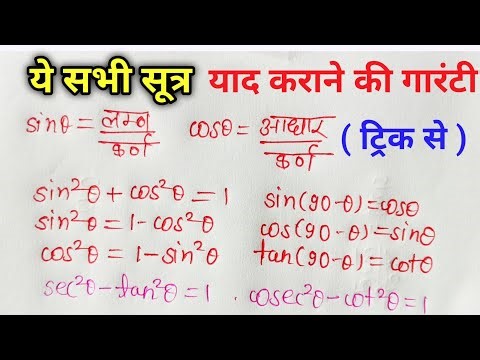 ये सभी सूत्र याद कराने की गारंटी
sinθ = लम्ब/कर्ण cosθ = आधार/कर्ण ( ट्रिक से )
sin²θ + cos²θ = 1 sin(90-θ)=cosθ
sin²θ = 1-cos²θ cos(90-θ)=sinθ
cos²θ = 1-sin²θ tan(90-θ)=cotθ
sec²θ-tan²θ=1 . cosec²θ-cot²θ=1